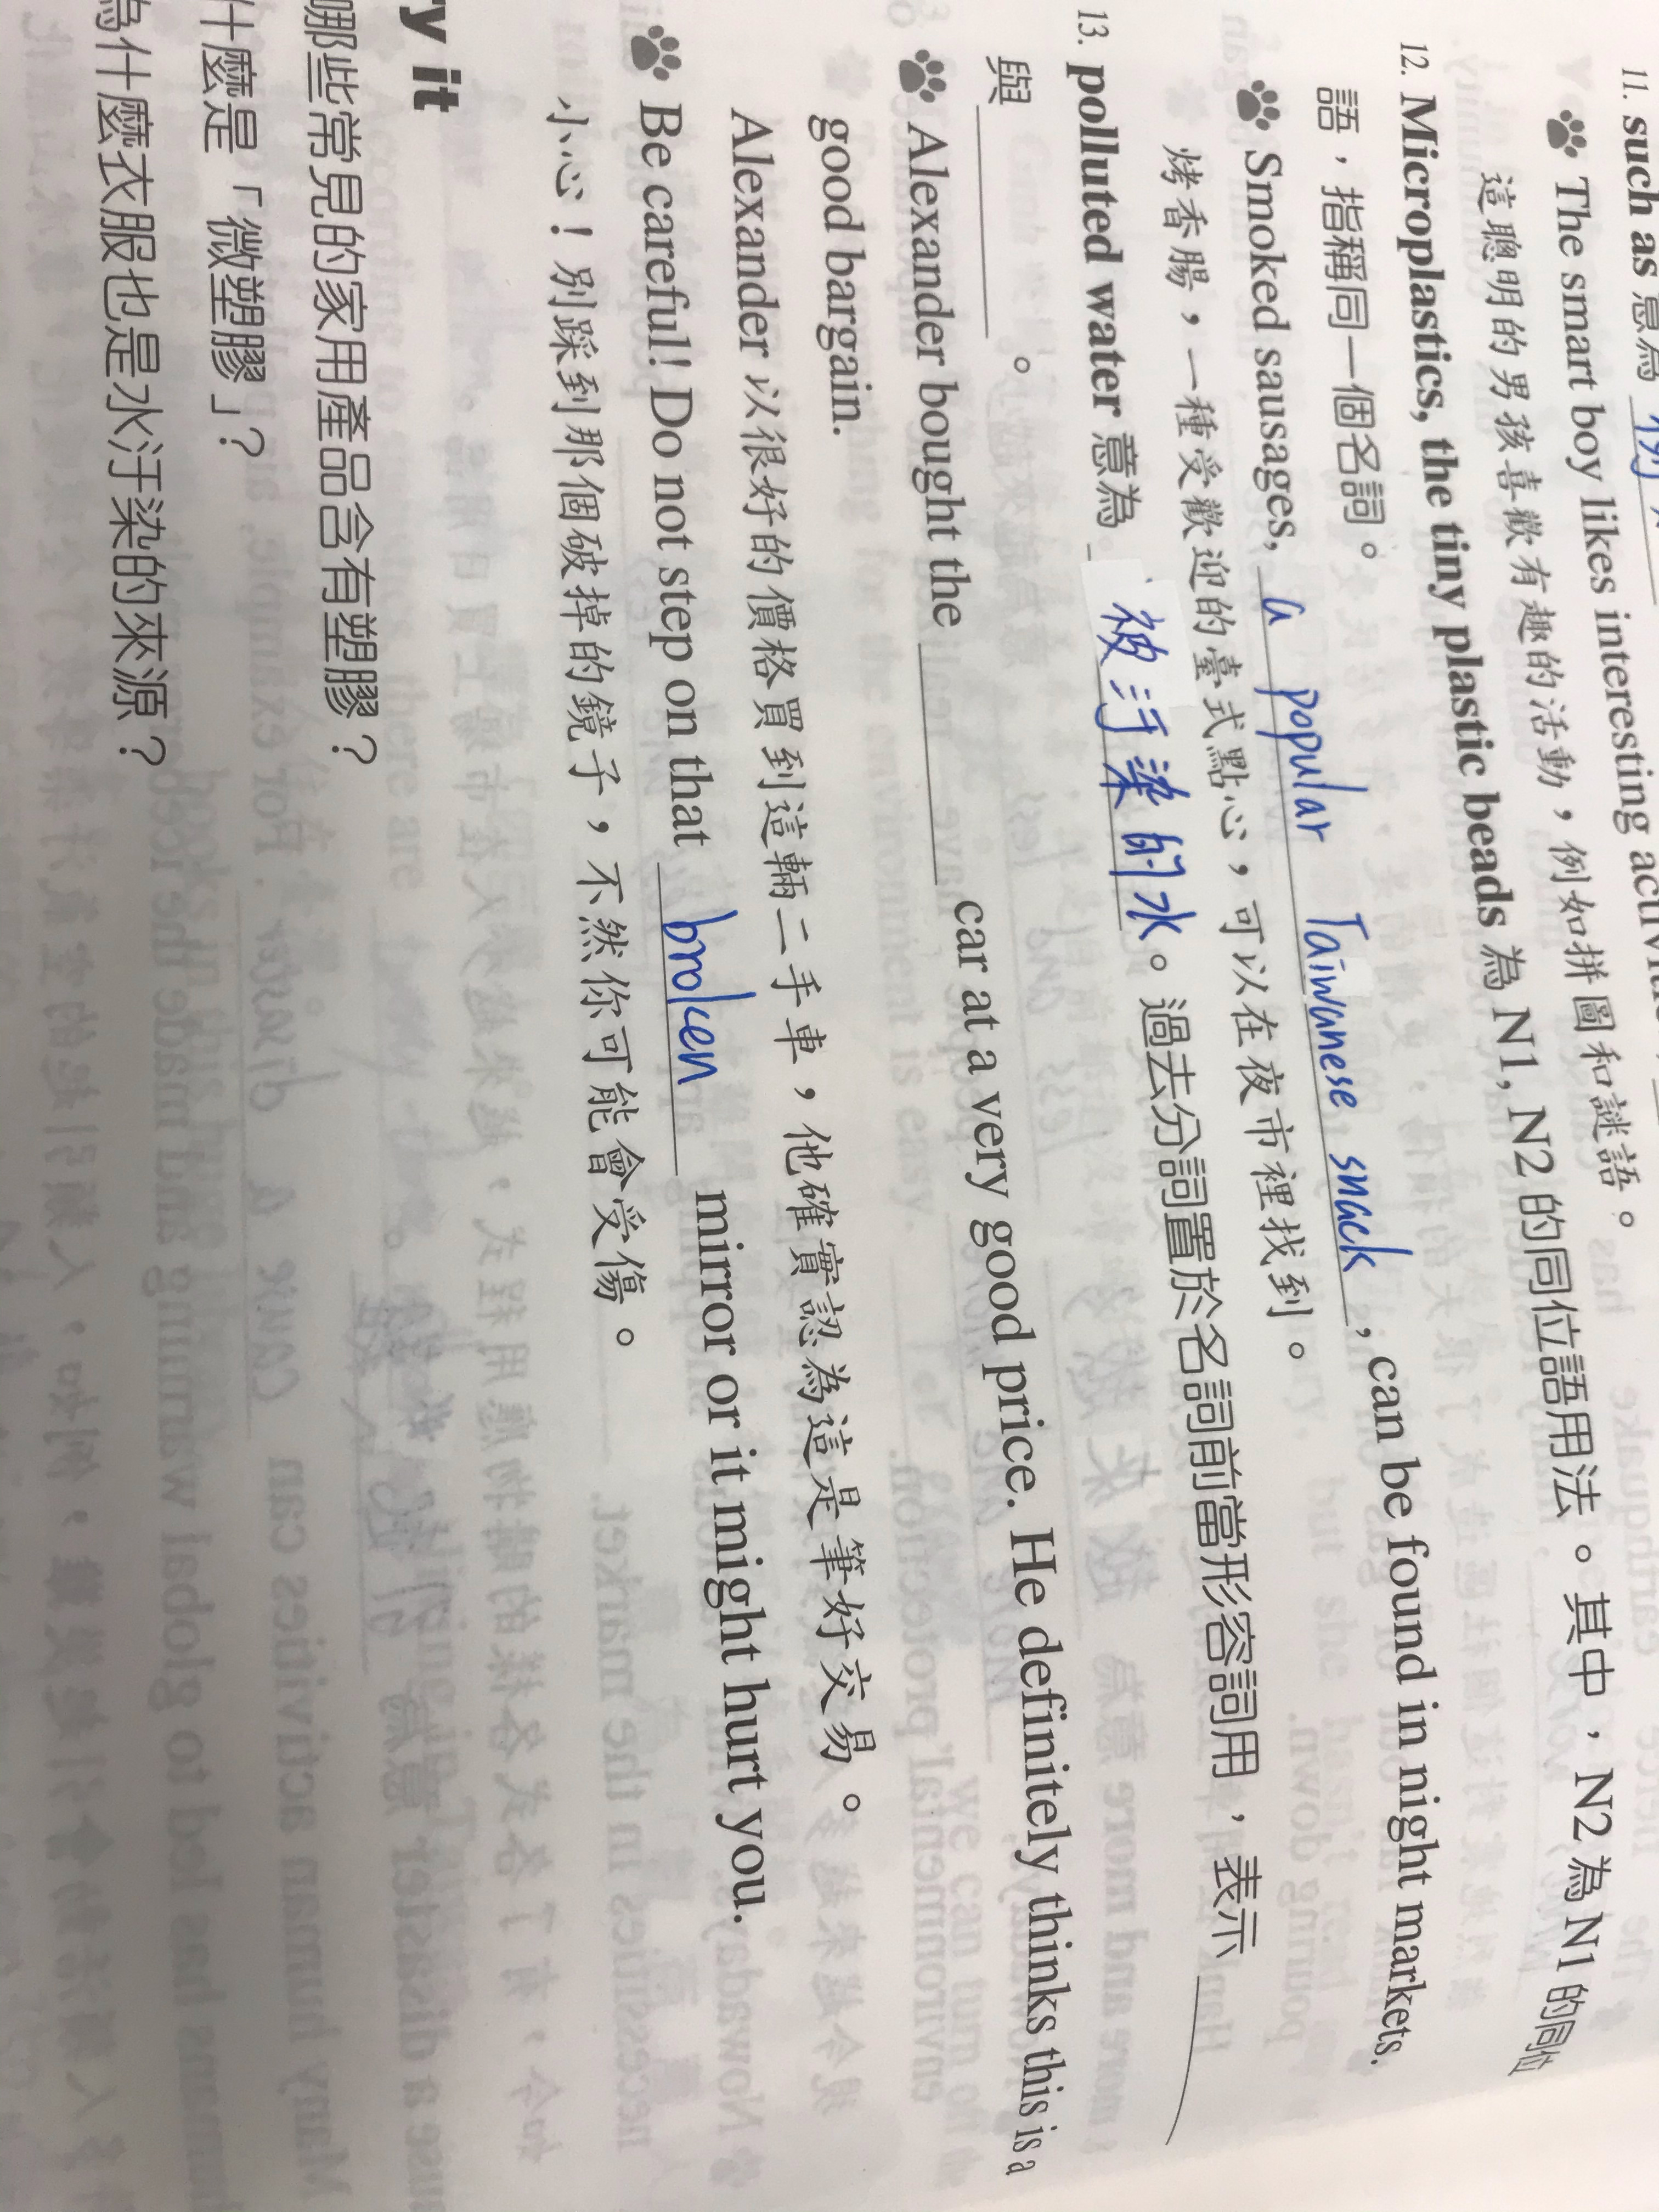 11. such as 意為 例
The smart boy likes interesting
這聰明的男孩喜歡有趣的活動，例如拼圖和謎語。
12. Microplastics, the tiny plastic beads 為 N1, N2 的同位語用法。其中，N2 為 N1 的同位
語，指稱同一個名詞。
Smoked sausages, a popular Taiwanese snack, can be found in night markets.
烤香腸，一種受歡迎的臺式點心，可以在夜市裡找到。
13. polluted water 意為 被汙染的水。過去分詞置於名詞前當形容詞用，表示 ______
與 ______。
Alexander bought the ______ car at a very good price. He definitely thinks this is a
good bargain.
Alexander 以很好的價格買到這輛二手車，他確實認為這是筆好交易。
Be careful! Do not step on that broken mirror or it might hurt you.
小心！別踩到那個破掉的鏡子，不然你可能會受傷。
y it
哪些常見的家用產品含有塑膠？
什麼是「微塑膠」？
為什麼衣服也是水汙染的來源？